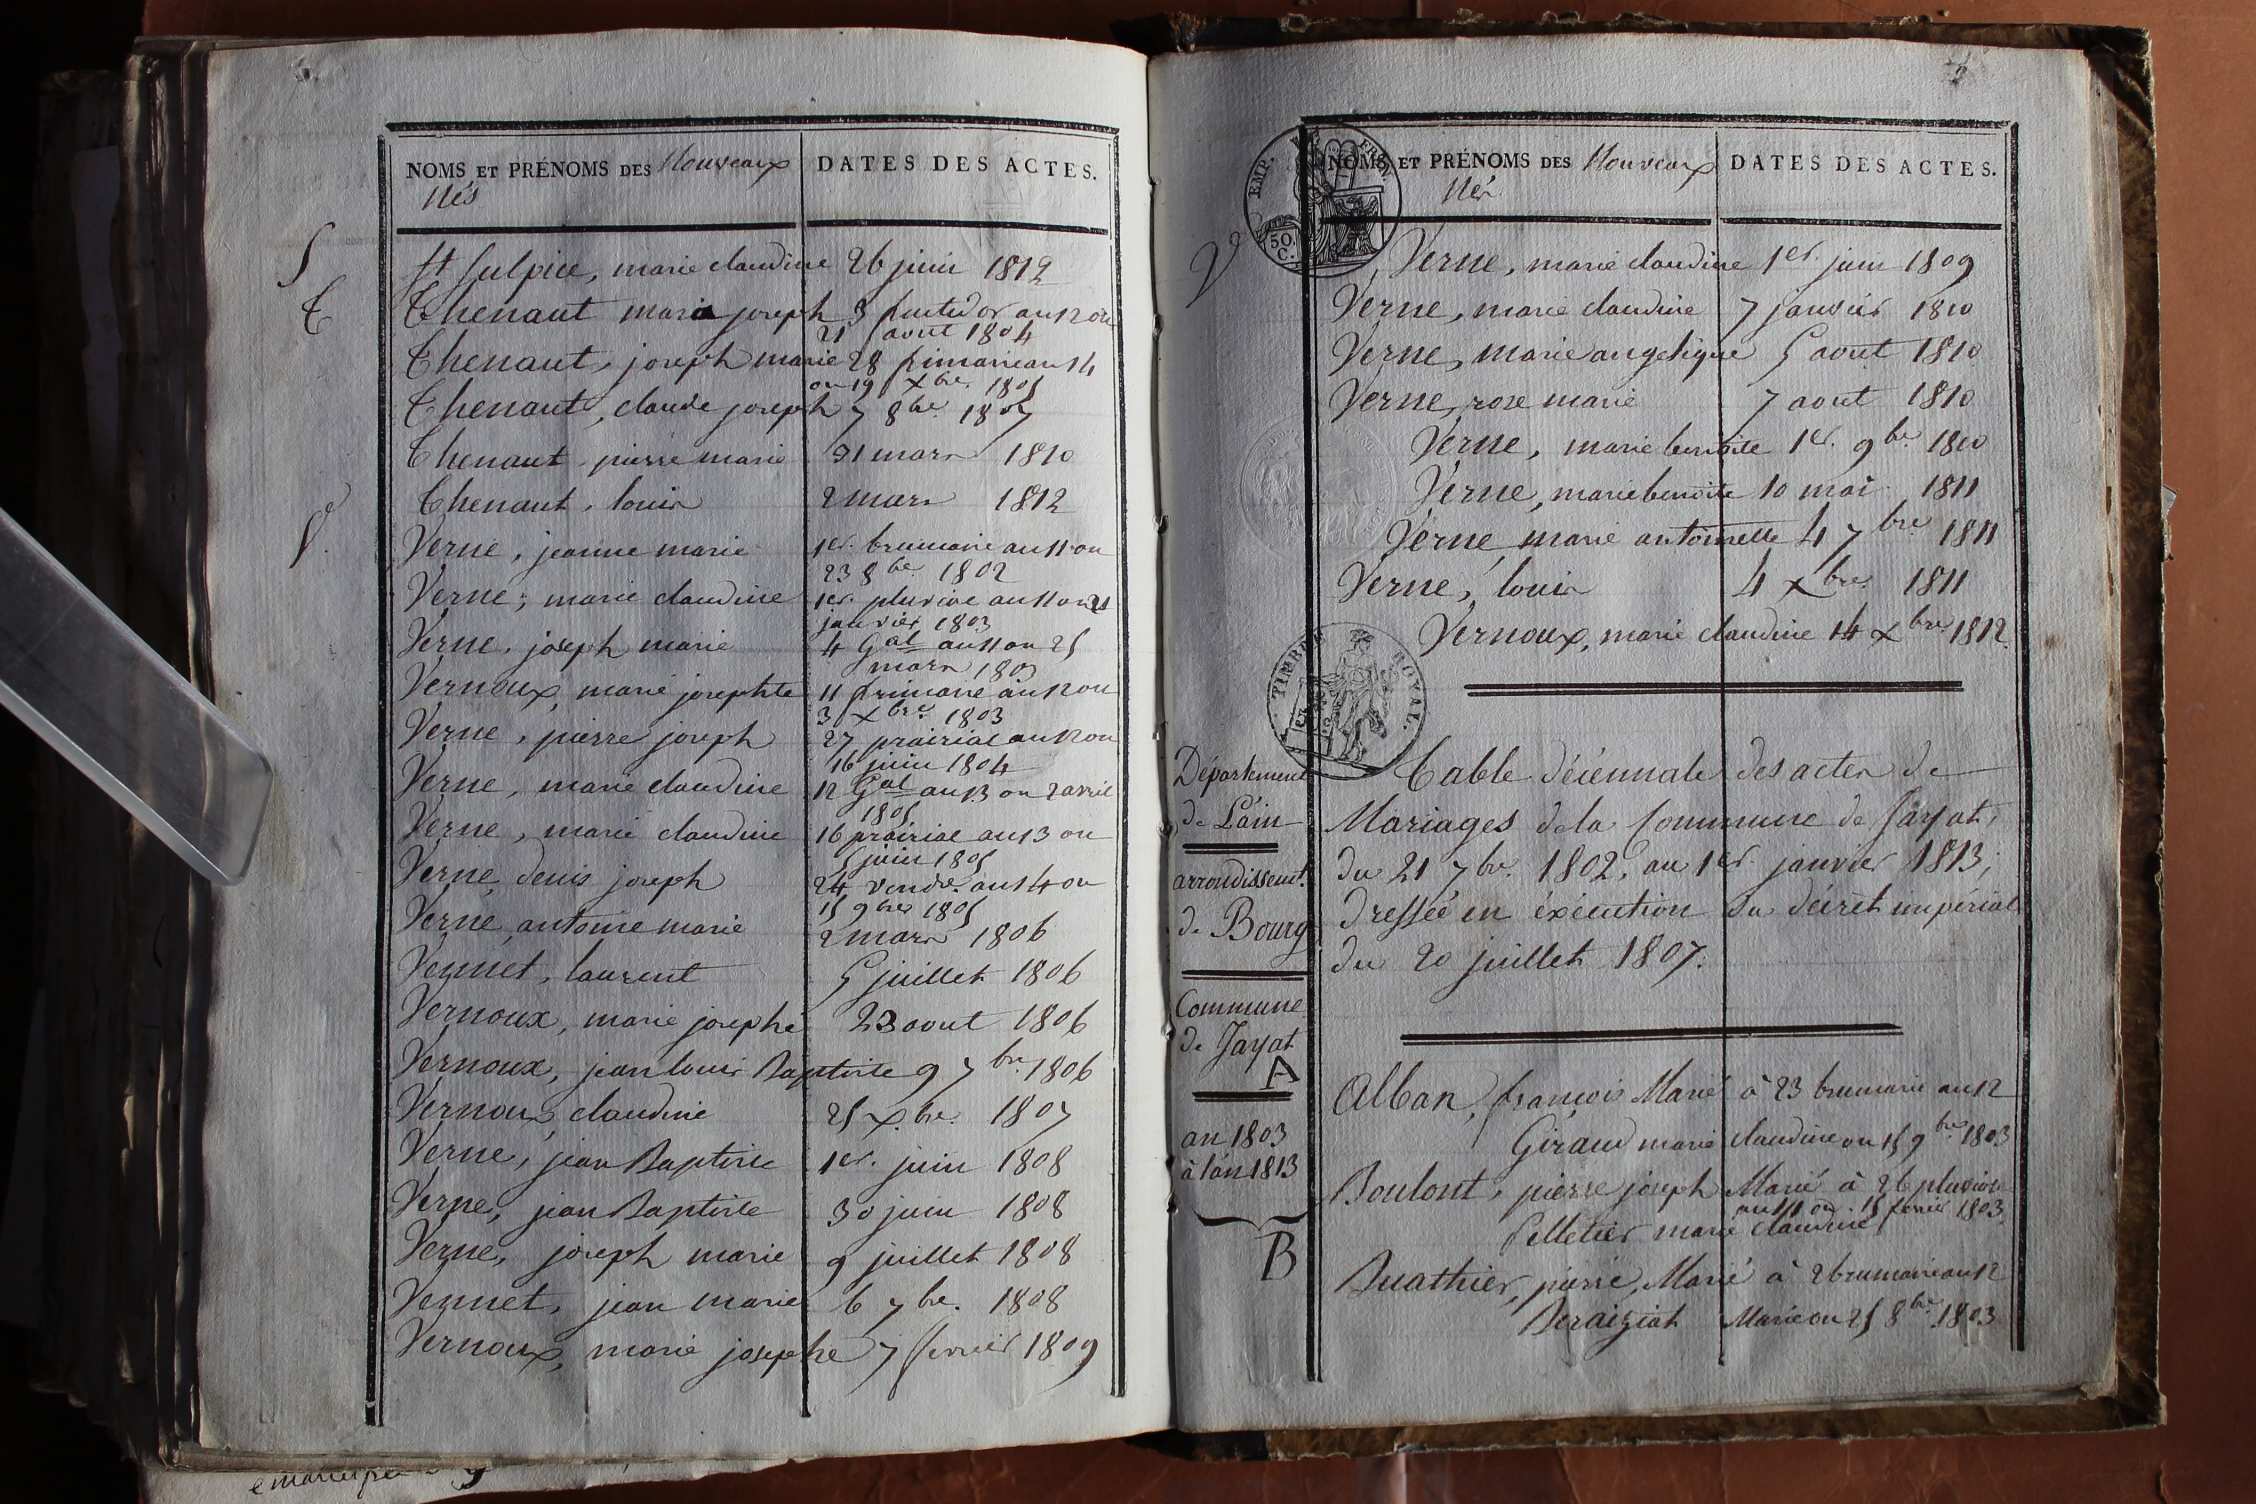 NOMS ET PRÉNOMS DES Nouveaux Nés
DATES DES ACTES.
S
St Sulpice, marie claudine 26 juin 1812
T
Thenaut marie joseph 3 fructidor an 12 ou
21 aout 1804
Thenaut, joseph marie 28 frimaire an 14
ou 19 Xbre 1805
Thenaut, claude joseph 7 8bre 1807
Thenaut, pierre marie 31 mars 1810
Thenaut, louis 2 mars 1812
V.
Verne, jeanne marie 1er. brumaire an 11 ou
23 8bre 1802
Verne, marie claudine 1er. pluviose an 11 ou 21
janvier 1803
Verne, joseph marie 4 Gal an 11 ou 25
mars 1803
Vernoux, marie josephte 11 frimaire an 12 ou
3 Xbre 1803
Verne, pierre joseph 27 prairial an 12 ou
16 juin 1804
Verne, marie claudine 12 Gal an 13 ou 2 avril
1805
Verne, marie claudine 16 prairial an 13 ou
5 juin 1805
Verne, denis joseph 24 vendre. an 14 ou
15 9bre 1805
Verne, antoine marie 2 mars 1806
Vennet, laurent 5 juillet 1806
Vernoux, marie josephe 23 aout 1806
Vernoux, jean louis Baptiste 9 7bre 1806
Vernoux, claudine 25 X.bre 1807
Verne, jean Baptiste 1er. juin 1808
Verne, jean Baptiste 30 juin 1808
Verne, joseph marie 9 juillet 1808
Vennet, jean marie 6 7bre. 1808
Vernoux, marie josephe 7 fevrier 1809
2
NOMS ET PRÉNOMS DES Nouveaux Nés
DATES DES ACTES.
EMP.
50.
C.
V
Verne, marie claudine 1er. juin 1809
Verne, marie claudine 7 janvier 1810
Verne, marie angelique 5 aout 1810
Verne, rose marie 7 aout 1810
Verne, marie benoite 1er. 9bre 1810
Verne, marie benoite 10 mai 1811
Verne marie antoinette 4 7bre 1811
Verne, louis 4 Xbre 1811
Vernoux, marie claudine 14 Xbre 1812.
TIMBRE ROYAL.
Département
de L'ain
arrondissemt.
de Bourg
Commune
de Jayat
A
an 1803
à l'an 1813
B
Table décennale des actes de
Mariages de la Commune de Jayat,
du 21 7bre 1802, au 1er. janvier 1813,
dressée en éxécution du décret impérial
du 20 juillet 1807.
Alban, françois Marié à 23 brumaire an 12
Giraud marie claudine ou 15 9bre 1803
Boulont, pierre joseph Marié à 26 pluviose
an 11 ou 15 fevrier 1803
Pelletier marie claudine
Buathier, pierre, Marié à 2 brumaire an 12
Beraiziat Marie ou 25 8bre 1803